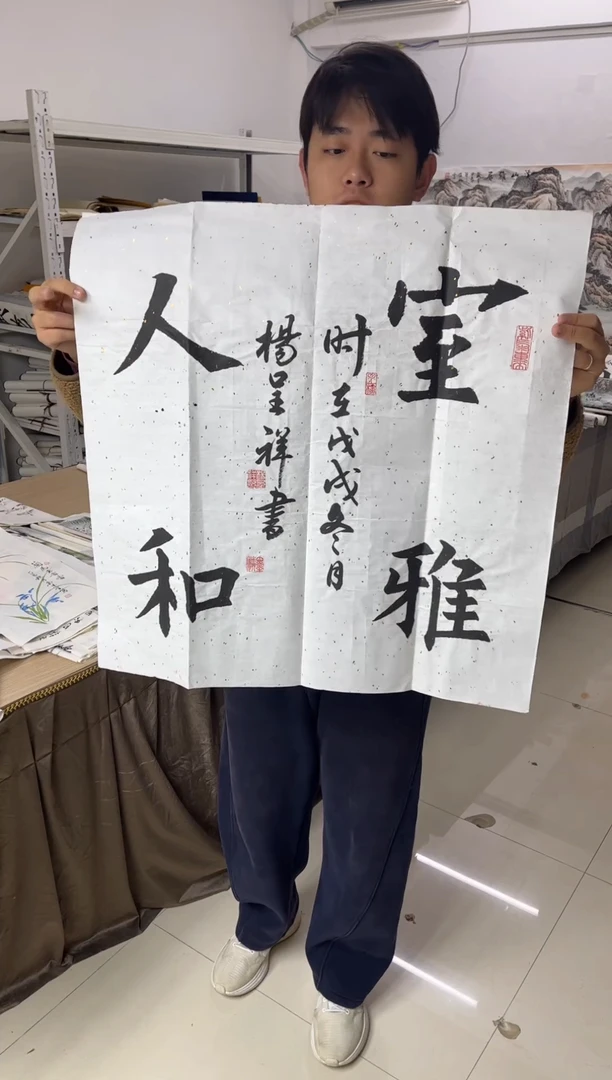 室雅
人和
时在戊戌冬月
楊呈祥書